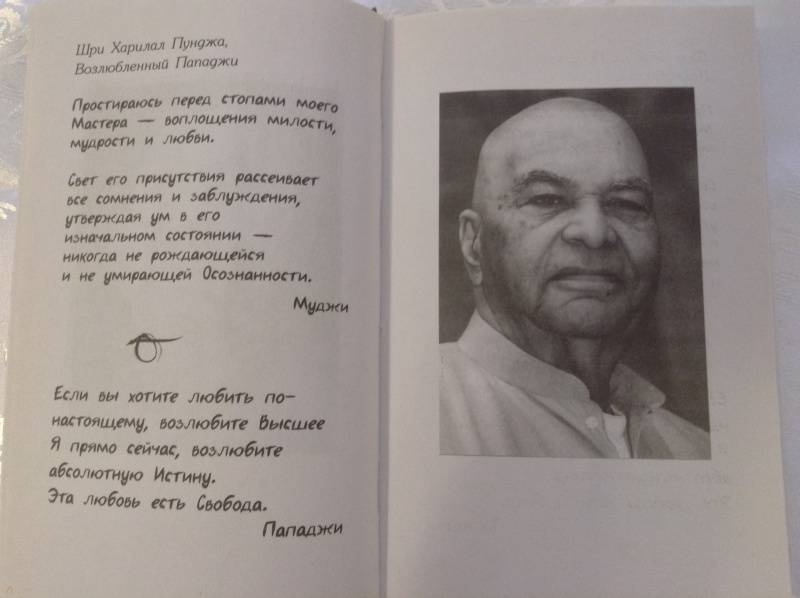 Шри Харилал Пунджа,
Возлюбленный Пападжи
Простираюсь перед стопами моего
Мастера — воплощения милости,
мудрости и любви.
Свет его присутствия рассеивает
все сомнения и заблуждения,
утверждая ум в его
изначальном состоянии —
никогда не рождающейся
и не умирающей Осознанности.
Муджи
Если вы хотите любить по-
настоящему, возлюбите Высшее
Я прямо сейчас, возлюбите
абсолютную Истину.
Эта любовь есть Свобода.
Пападжи